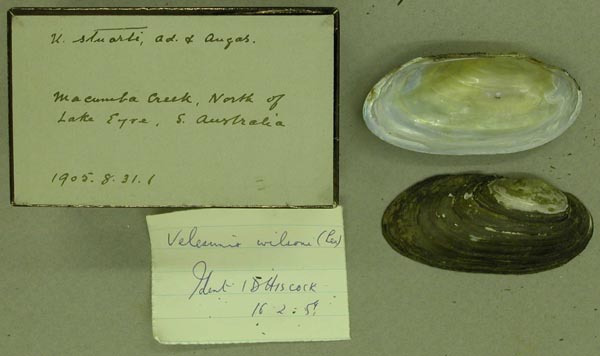 U. stuarti, Ad. & Angas.
Macumba Creek, North of
Lake Eyre, S. Australia
1905.8.31.1
Velesunio wilsoni (Lea)
Ident I D HISCOCK
16.2.59